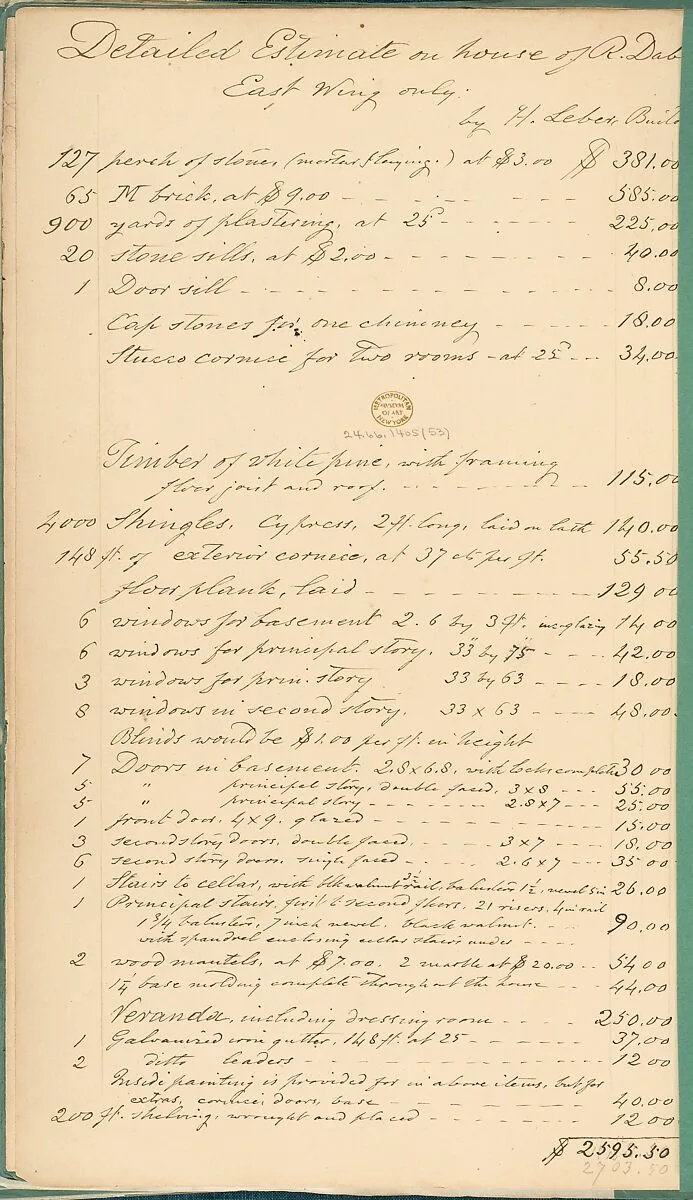 Detailed Estimate on house of R. Dab
East Wing only:
by H. Leber, Build
127 perch of stone, (mortar & laying.) at $3.00 $ 381.00
65 M brick, at $9.00 585.00
900 yards of plastering, at 25c 225.00
20 stone sills, at $2.00 40.00
1 Door sill 8.00
Cap stones for one chimney 18.00
Stucco cornice for two rooms - at 25c 34.00
METROPOLITAN
MUSEUM
OF ART
NEW YORK
24.66.1405(53)
Timber of white pine, with framing
floor joist and roof. 115.00
4000 Shingles, Cypress, 2 ft. long, laid on lath 140.00
148 ft. of exterior cornice, at 37 cts per ft. 55.50
floor plank, laid 129 00
6 windows for basement 2.6 by 3 ft. inc. glazing 14 00
6 windows for principal story. 33" by 75" 42.00
3 windows for prin. story 33 by 63 18.00
8 windows in second story. 33 x 63 48.00
Blinds would be $1.00 per ft. in height
7 Doors in basement. 2.8 x 6.8, with locks complete 30 00
5 " principal story, double faced, 3 x 8 55.00
5 " principal story 2.8 x 7 25.00
1 front door, 4 x 9. glazed 15.00
3 second story doors, double faced. 3 x 7 18.00
6 second story doors. single faced 2.6 x 7 35 00
1 Stairs to cellar, with blk walnut rail, balusters 1½, newel 5 in 26.00
1 Principal stairs, first to second floors, 21 risers, 4 in rail
1 3/4 balusters, 7 inch newel, black walnut.
with spandrel enclosing cellar stairs under 90.00
2 wood mantels, at $7.00. 2 marble at $20.00 54 00
1¼ base molding complete throughout the house 44.00
Veranda, including dressing room 250.00
1 Galvanized iron gutter, 148 ft. at 25 37.00
2 ditto leaders 12 00
Inside painting is provided for in above items, but for
extras, cornice, doors, base 40.00
200 ft. shelving, wrought and placed 12 00
$ 2595.50
2703.50